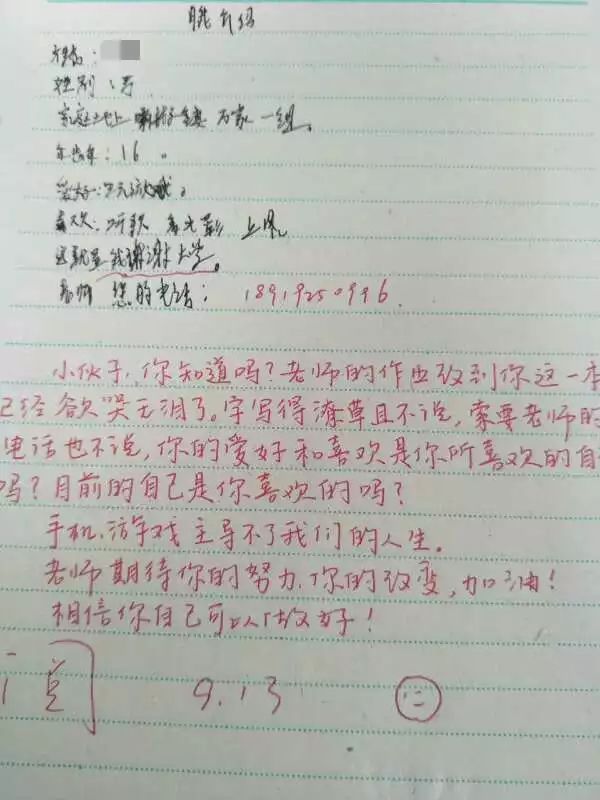 自我介绍
姓名:
性别:男
家庭地址 万家一组。
年龄:16。
爱好:玩游戏。
喜欢:听歌 看电影 上网
这就是我谢谢大家。
老师 您的电话: 18919250996.
小伙子,你知道吗?老师的作业改到你这一本
已经欲哭无泪了。字写得潦草且不说,索要老师的
电话也不说,你的爱好和喜欢是你所喜欢的自
吗?目前的自己是你喜欢的吗?
手机、游戏主导不了我们的人生。
老师期待你的努力、你的改变,加油!
相信你自己可以做好!
阅 9.13